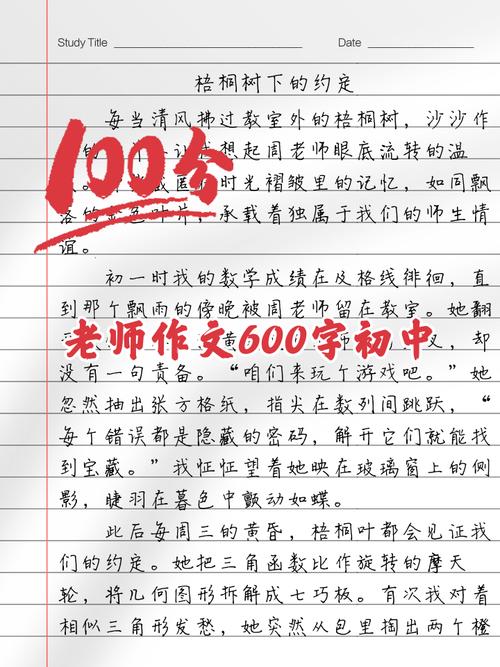 Study Title
Date
梧桐树下的约定
每当清风拂过教室外的梧桐树，沙沙作
100分
的 想起周老师眼底流转的温
时光褶皱里的记忆，如同飘
落的金色叶片，承载着独属于我们的师生情
谊。
初一时我的数学成绩在及格线徘徊，直
到那个飘雨的傍晚被周老师留在教室。她翻
老师作文600字初中
没有一句责备。“咱们来玩个游戏吧。”她
忽然抽出张方格纸，指尖在数列间跳跃，“
每个错误都是隐藏的密码，解开它们就能找
到宝藏。”我怔怔望着她映在玻璃窗上的侧
影，睫羽在暮色中颤动如蝶。
此后每周三的黄昏，梧桐叶都会见证我
们的约定。她把三角函数比作旋转的摩天
轮，将几何图形拆解成七巧板。有次我对着
相似三角形发愁，她突然从包里掏出两个橙